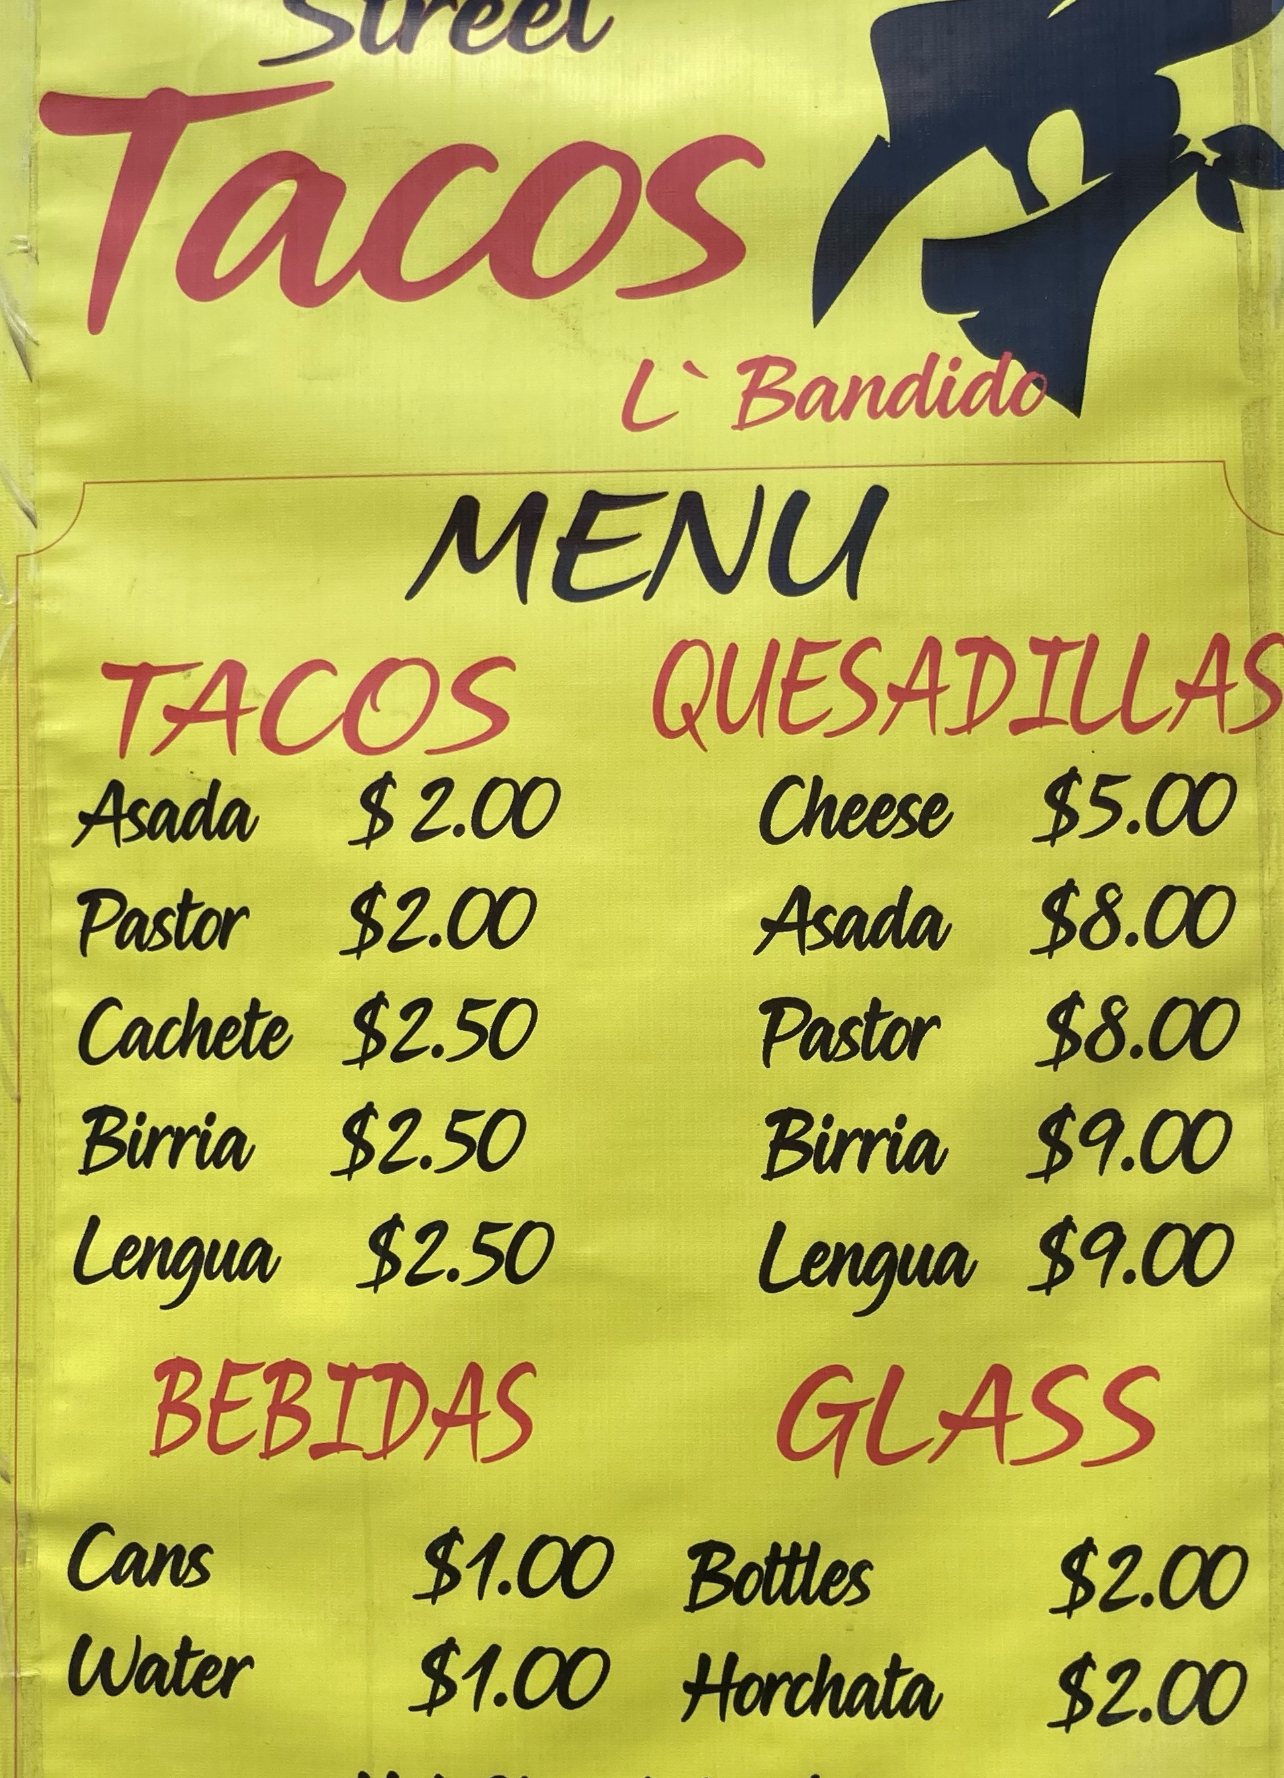 Street
Tacos
L` Bandido
MENU
TACOS
Asada $2.00
Pastor $2.00
Cachete $2.50
Birria $2.50
Lengua $2.50
QUESADILLAS
Cheese $5.00
Asada $8.00
Pastor $8.00
Birria $9.00
Lengua $9.00
BEBIDAS
Cans $1.00
Water $1.00
GLASS
Bottles $2.00
Horchata $2.00